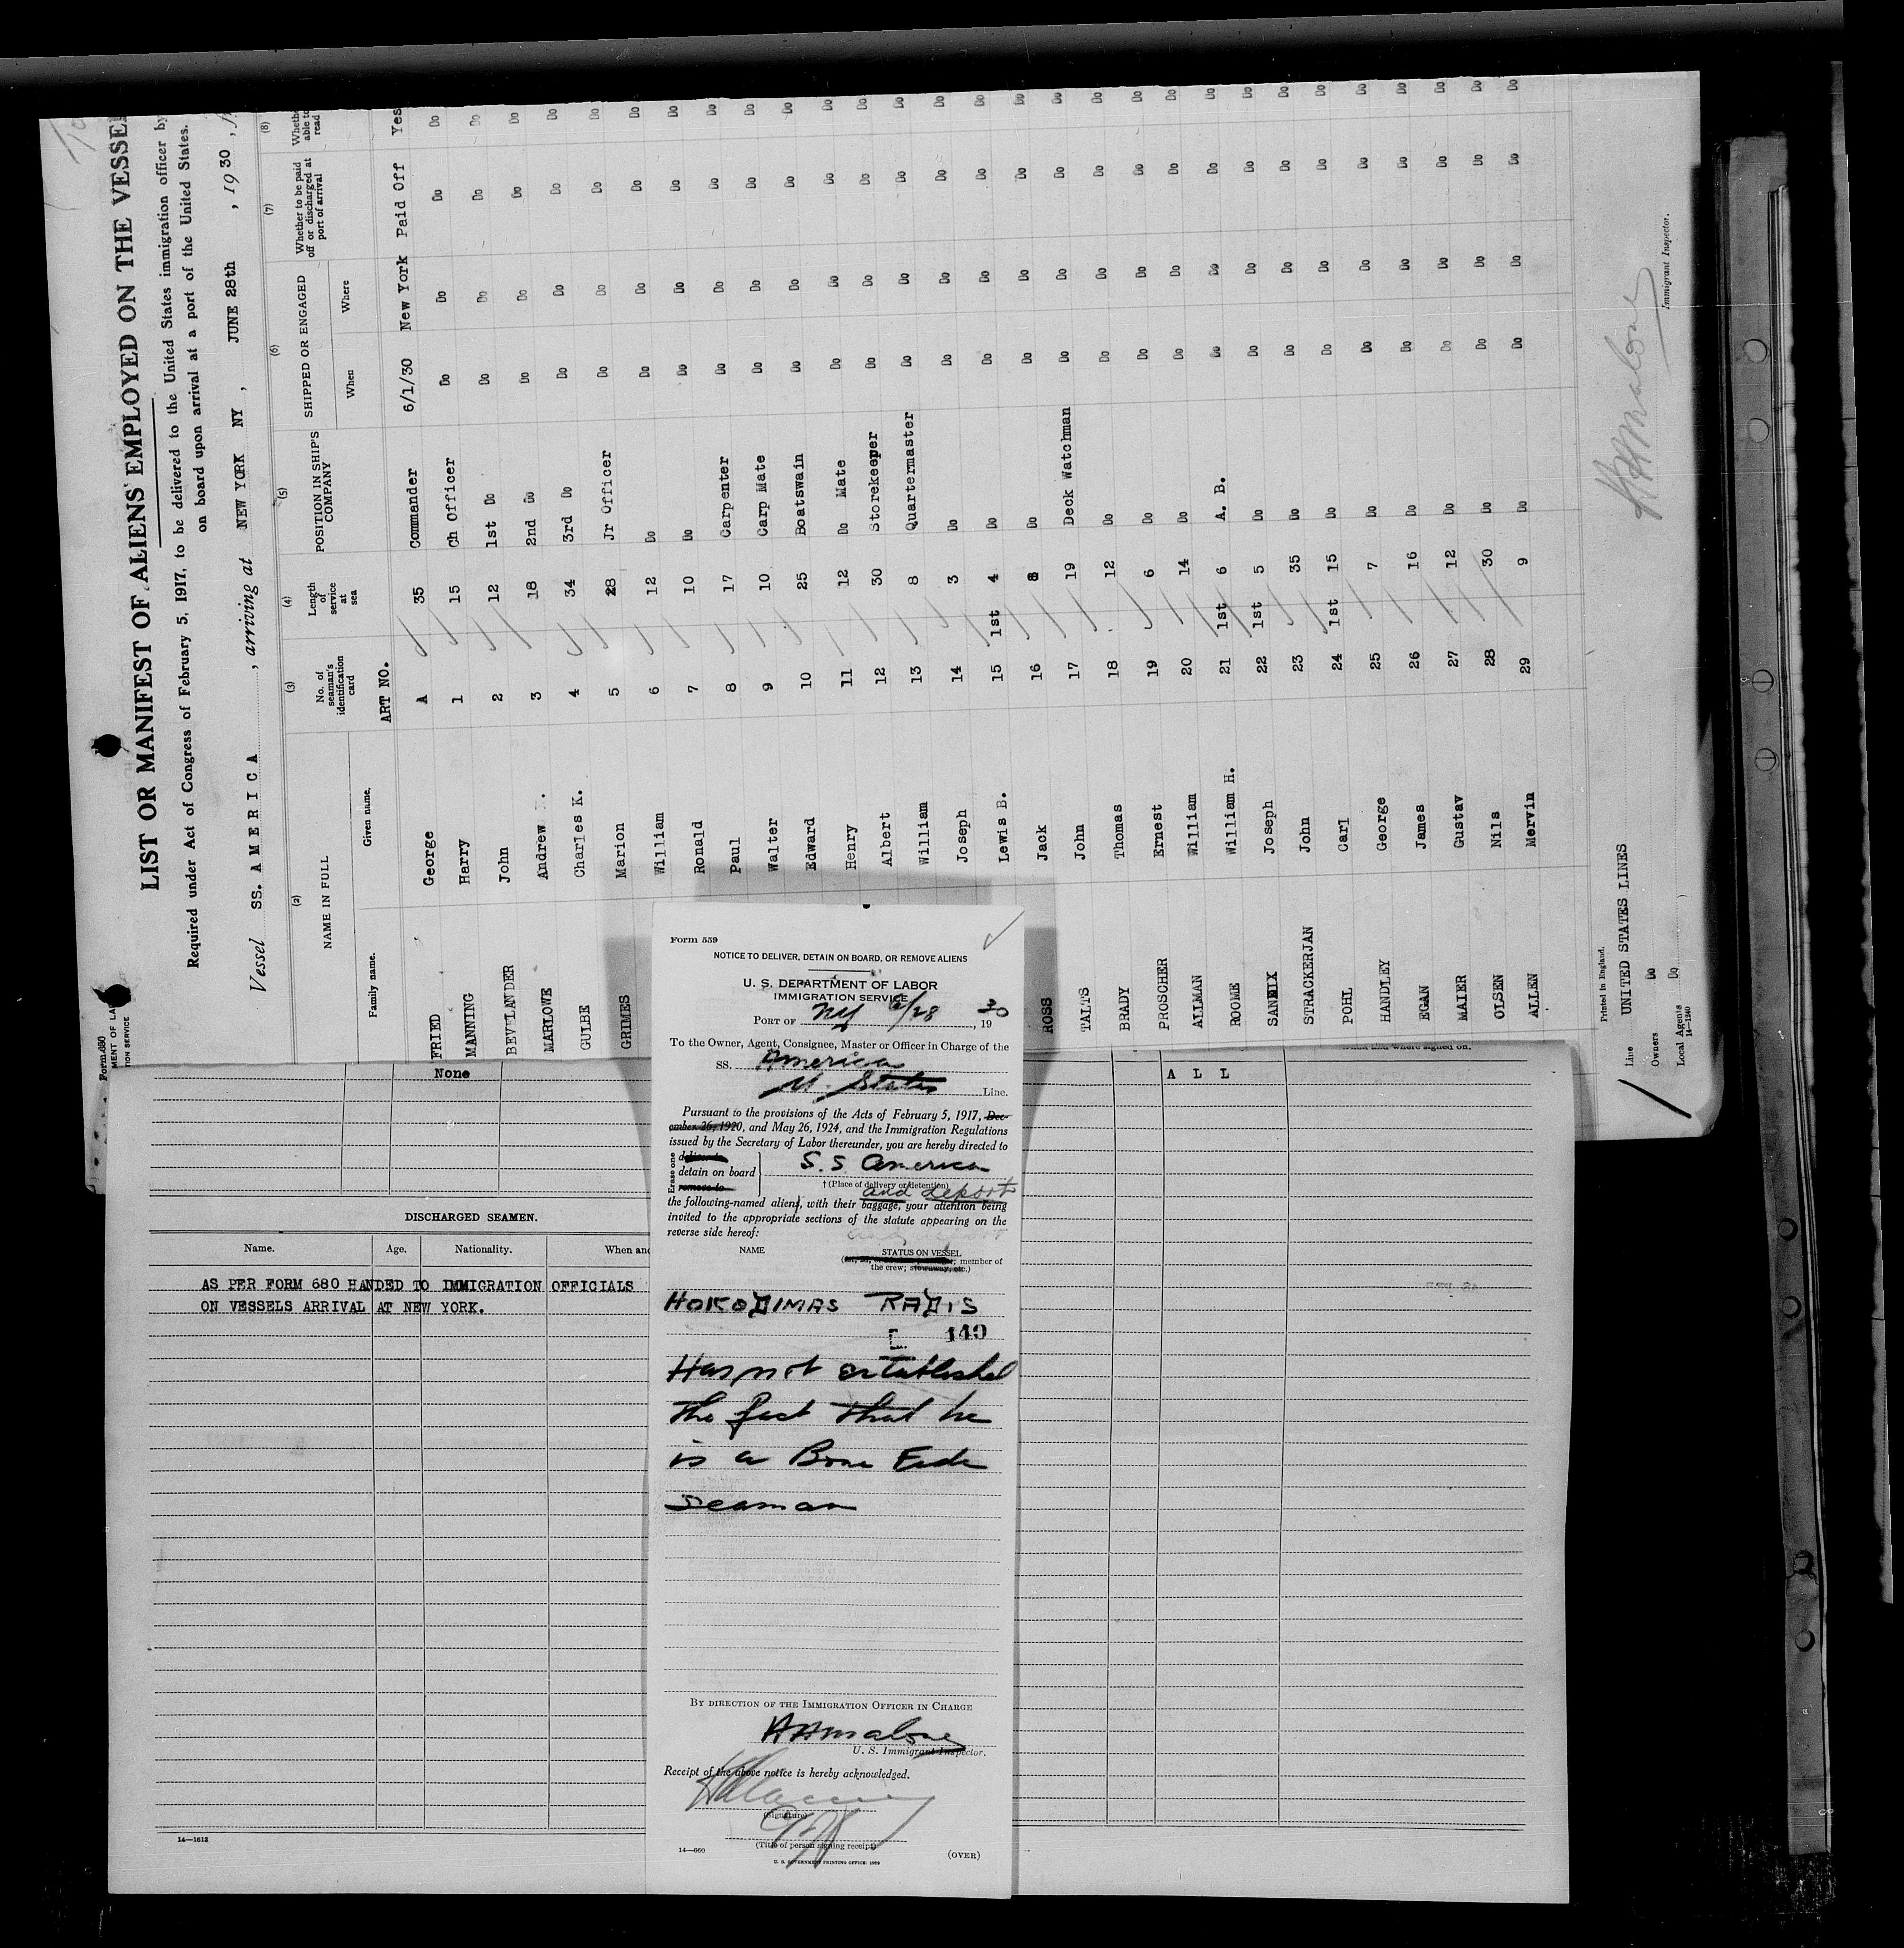 LIST OR MANIFEST OF ALIENS EMPLOYED ON THE VESSEL
Required under Act of Congress of February 5, 1917, to be delivered to the United States immigration officer by
on board upon arrival at a port of the United States.
Vessel SS. AMERICA, arriving at NEW YORK NY, JUNE 28th, 1930,
(2) (3) (4) (5) (6) (7) (8)
NAME IN FULL
Family name. Given name.
No. of seaman's identification card
Length of service at sea
POSITION IN SHIP'S COMPANY
SHIPPED OR ENGAGED
When Where
Whether to be paid off or discharged at port of arrival
Whether able to read
ART NO.
FRIED George A 35 Commander 6/1/30 New York Paid Off Yes
MANNING Harry 1 15 Ch Officer Do Do Do Do
BEVELANDER John 2 12 1st Do Do Do Do Do
MARLOWE Andrew 3 18 2nd Do Do Do Do Do
GULBE Charles K. 4 34 3rd Do Do Do Do Do
GRIMES Marion 5 28 Jr Officer Do Do Do Do
William 6 12 Do Do Do Do Do
Ronald 7 10 Do Do Do Do Do
Paul 8 17 Carpenter Do Do Do Do
Walter 9 10 Carp Mate Do Do Do Do
Edward 10 25 Boatswain Do Do Do Do
Henry 11 12 Do Mate Do Do Do Do
Albert 12 30 Storekeeper Do Do Do Do
William 13 8 Quartermaster Do Do Do Do
Joseph 14 3 Do Do Do Do Do
Lewis B. 15 1st 4 Do Do Do Do Do
ROSS Jack 16 8 Do Do Do Do Do
TALTS John 17 19 Deck Watchman Do Do Do Do
BRADY Thomas 18 12 Do Do Do Do Do
PROSCHER Ernest 19 6 Do Do Do Do Do
ALLMAN William 20 14 Do Do Do Do Do
ROOME William H. 21 1st 6 A. B. Do Do Do Do
Joseph 22 1st 5 Do Do Do Do Do
STRACKERJAN John 23 35 Do Do Do Do Do
POHL Carl 24 1st 15 Do Do Do Do Do
HANDLEY George 25 7 Do Do Do Do Do
EGAN James 26 16 Do Do Do Do Do
MAIER Gustav 27 12 Do Do Do Do Do
OLSEN Nils 28 30 Do Do Do Do Do
ALLEN Mervin 29 9 Do Do Do Do Do
Printed in England.
Line UNITED STATES LINES
Owners Do
Local Agents Do
14-1240
Immigrant Inspector.
Form 680
TION SERVICE
None
ALL
DISCHARGED SEAMEN.
Name. Age. Nationality. When and
AS PER FORM 680 HANDED TO IMMIGRATION OFFICIALS
ON VESSELS ARRIVAL AT NEW YORK.
14—1613
Form 559
NOTICE TO DELIVER, DETAIN ON BOARD, OR REMOVE ALIENS
U. S. DEPARTMENT OF LABOR
IMMIGRATION SERVICE
PORT OF NY 6/28, 1930
To the Owner, Agent, Consignee, Master or Officer in Charge of the
SS. America
U. States Line.
Pursuant to the provisions of the Acts of February 5, 1917, Dec-
ember 26, 1920, and May 26, 1924, and the Immigration Regulations
issued by the Secretary of Labor thereunder, you are hereby directed to
Erase one
deliver to
detain on board S.S. America
remove to
†(Place of delivery or detention)
and deport
the following-named aliens, with their baggage, your attention being
invited to the appropriate sections of the statute appearing on the
reverse side hereof:
NAME STATUS ON VESSEL
member of
the crew; stowaway, etc.)
140
Has not established
the fact that he
is a Bona Fide
Seaman
BY DIRECTION OF THE IMMIGRATION OFFICER IN CHARGE
U. S. Immigrant Inspector.
Receipt of the above notice is hereby acknowledged.
(Signature)
(Title of person signing receipt)
14—660 (OVER)
U. S. GOVERNMENT PRINTING OFFICE: 1929